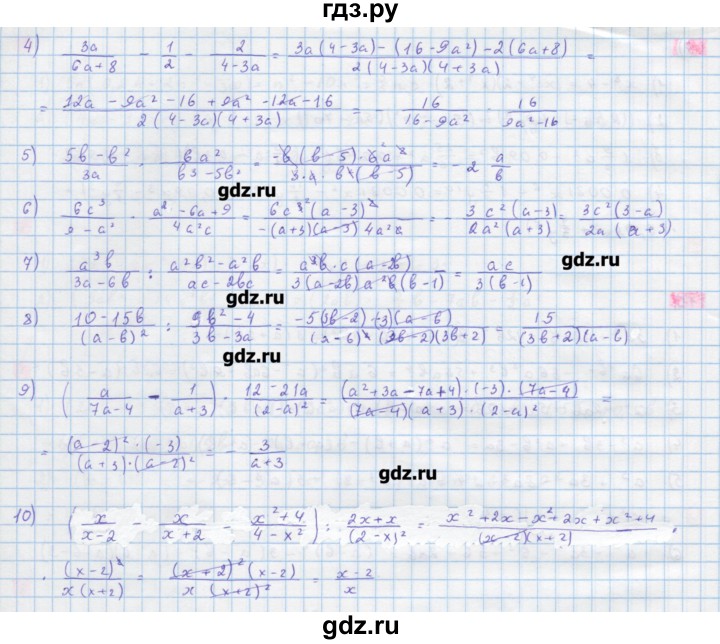 гдз.ру
4) 3a/(6a+8) - 1/2 - 2/(4-3a) = (3a(4-3a)-(16-9a²)-2(6a+8))/(2(4-3a)(4+3a)) =
= (12a-9a²-16+9a²-12a-16)/(2(4-3a)(4+3a)) = - 16/(16-9a²) 16/(9a²-16)
gdz.ru
5) (5b-b²)/3a · 6a²/(b³-5b²) = (-b(b-5)·6a²)/(3·a·b²(b-5)) = -2 a/b
gdz.ru
6) 6c³/(9-a²) · (a²-6a+9)/4a²c = (6c³(a-3)²)/(-(a+3)(a-3)4a²c) = - (3c²(a-3))/(2a²(a+3)) = (3c²(3-a))/(2a(a+3))
7) a³b/(3a-6b) : (a²b²-a²b)/(ac-2bc) = (a³b·c(a-2b))/(3(a-2b)a²b(b-1)) = ac/(3(b-1))
gdz.ru
gdz.ru
8) (10-15b)/(a-b)² : (9b²-4)/(3b-3a) = (-5(3b-2)·3(a-b))/((a-b)²(3b-2)(3b+2)) = 15/((3b+2)(a-b
gdz.ru
9) (a/(7a-4) - 1/(a+3)) · (12-21a)/(2-a)² = ((a²+3a-7a+4)·(-3)·(7a-4))/((7a-4)(a+3)·(2-a)²) =
gdz.ru
= ((a-2)²·(-3))/((a+3)·(a-2)²) = - 3/(a+3)
gdz.ru
10) (x/(x-2) - x/(x+2) - (x²+4)/(4-x²)) : (2x+x)/(2-x)² = (x²+2x-x²+2x+x²+4)/((x-2)(x+2)) ·
· (x-2)²/(x(x+2)) = ((x+2)²(x-2))/(x(x+2)²) = (x-2)/x
gdz.ru